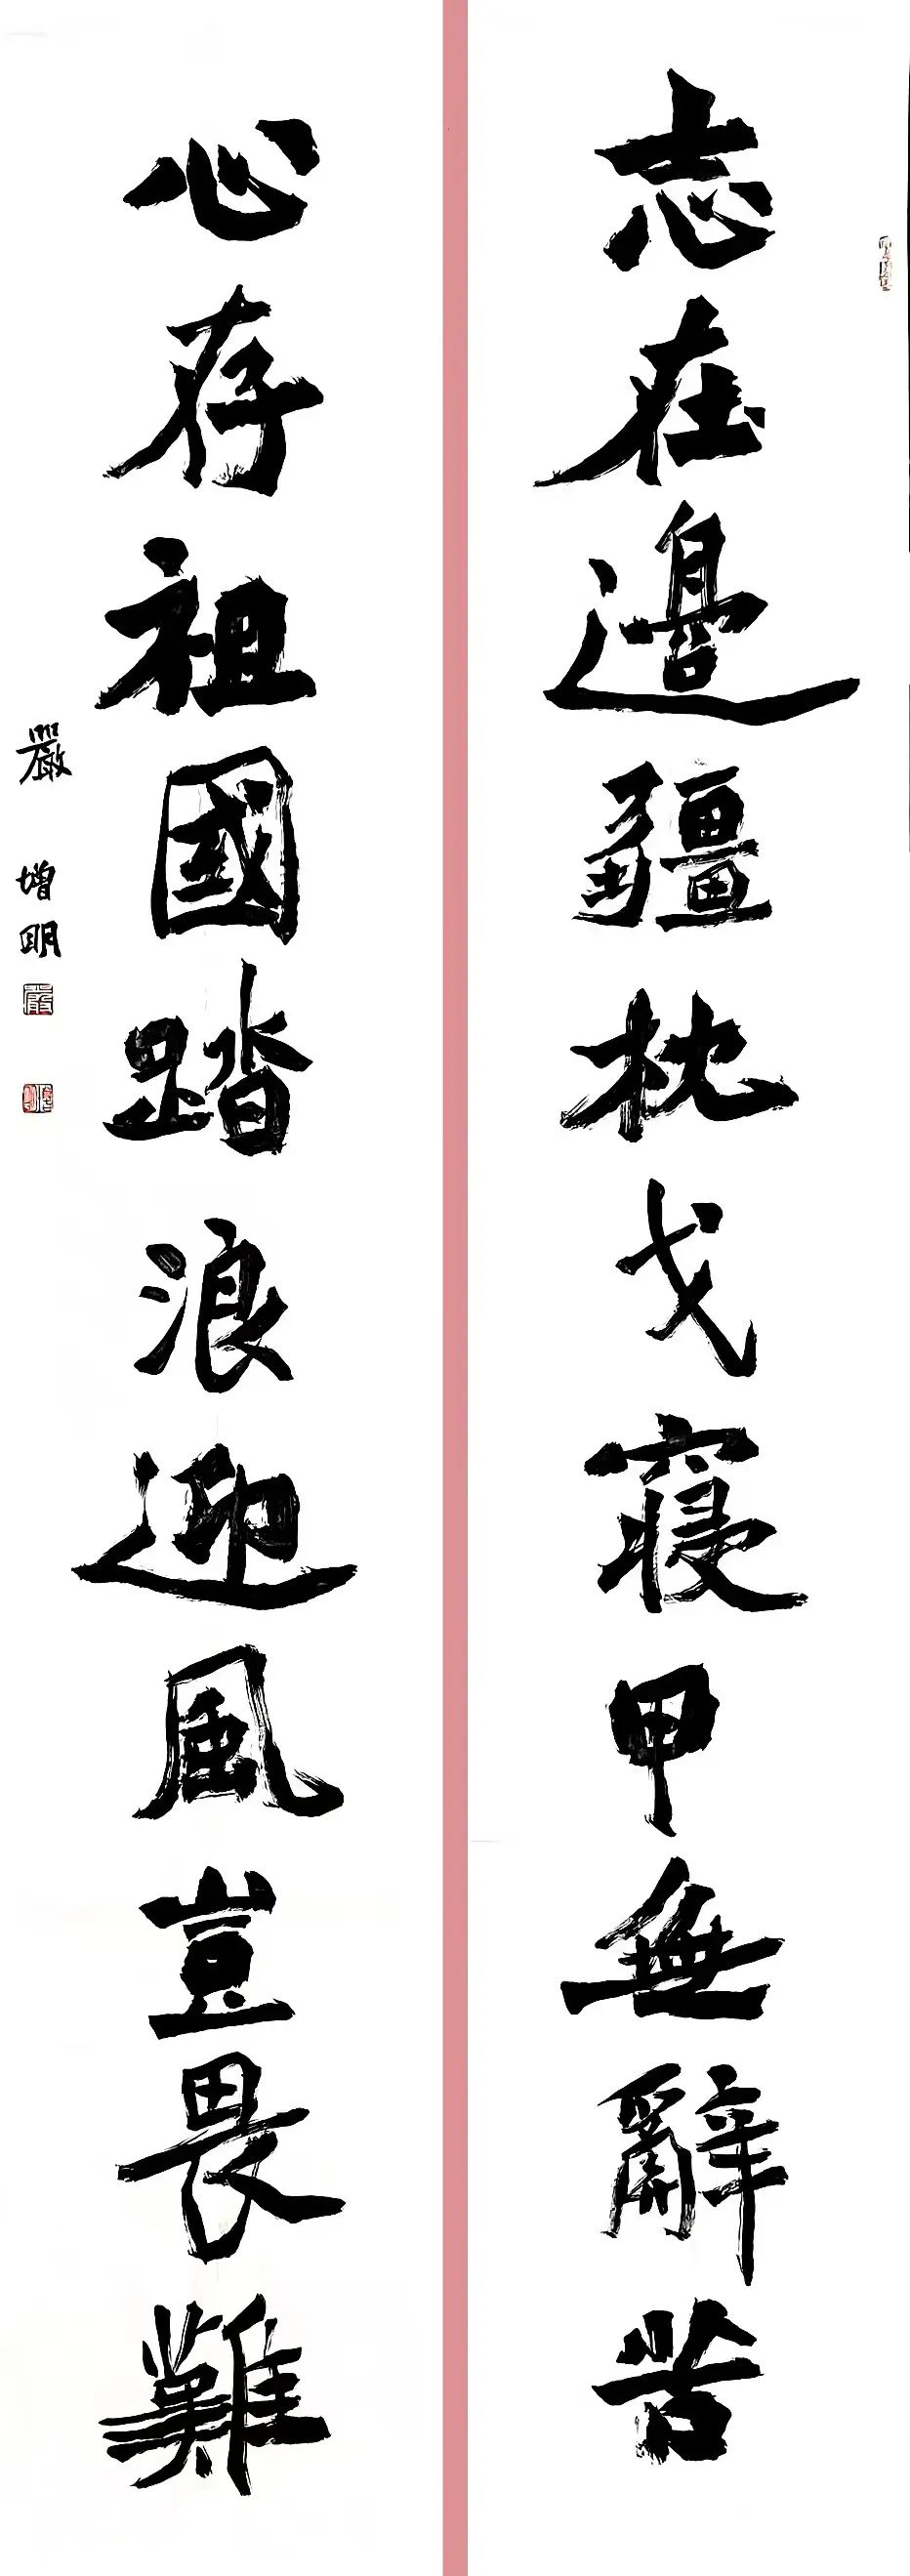 志在邊疆枕戈寢甲無辭苦
心存祖國踏浪迎風豈畏難
嚴增明